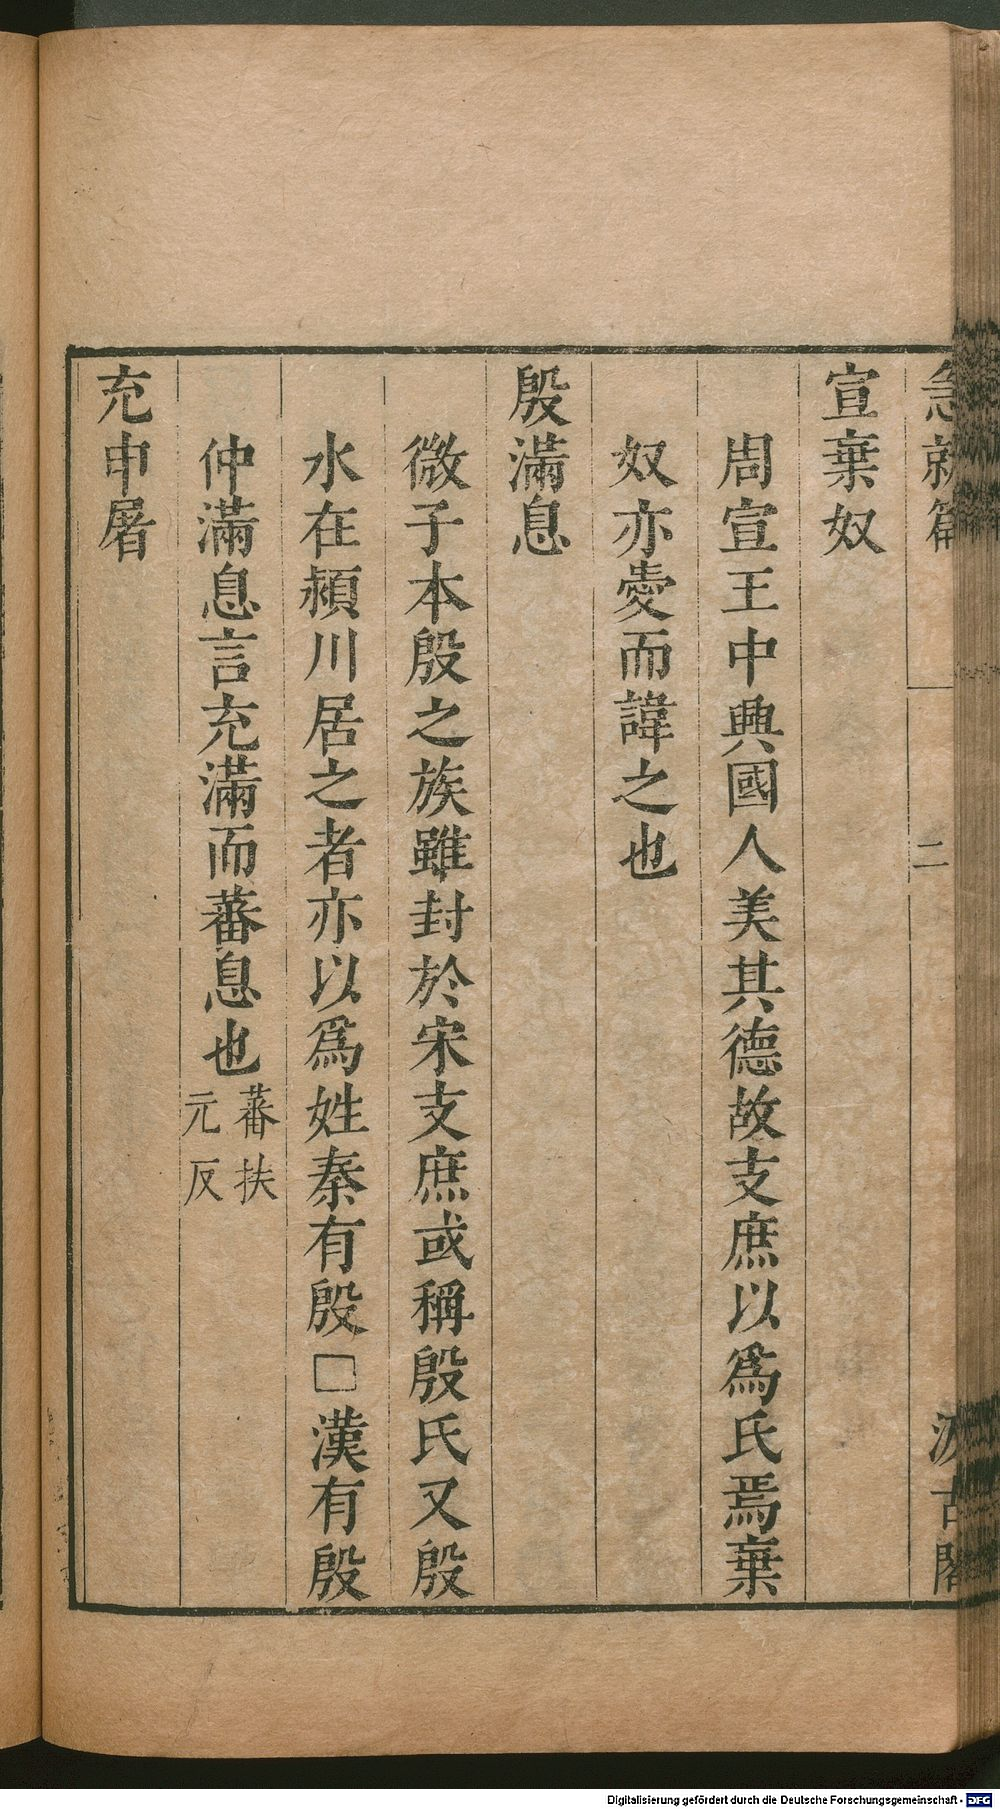 急就篇 二 汲古閣
宣棄奴
周宣王中興國人美其德故支庶以爲氏焉棄
奴亦愛而諱之也
殷滿息
微子本殷之族雖封於宋支庶或稱殷氏又殷
水在潁川居之者亦以爲姓秦有殷□漢有殷
仲滿息言充滿而蕃息也蕃扶
元反
充申屠
Digitalisierung gefördert durch die Deutsche Forschungsgemeinschaft - DFG